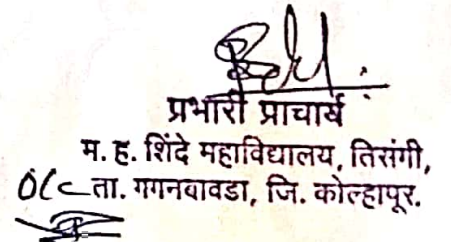 प्रभारी प्राचार्य
म. ह. शिंदे महाविद्यालय, तिसंगी,
O/C ता. गगनबावडा, जि. कोल्हापूर.